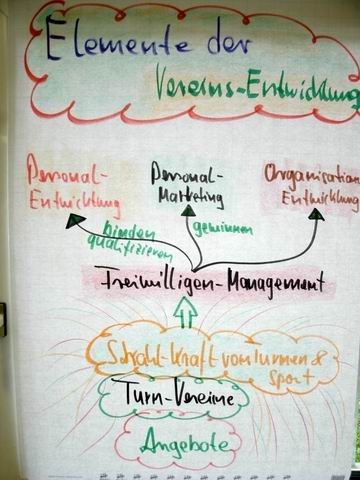 Elemente der
Vereins-Entwicklung
Personal-
Entwicklung
Personal-
Marketing
Organisation
Entwicklung
binden
qualifizieren
gewinnen
Freiwilligen-Management
Strahl-Kraft von Turnen &
Sport
Turn-Vereine
Angebote